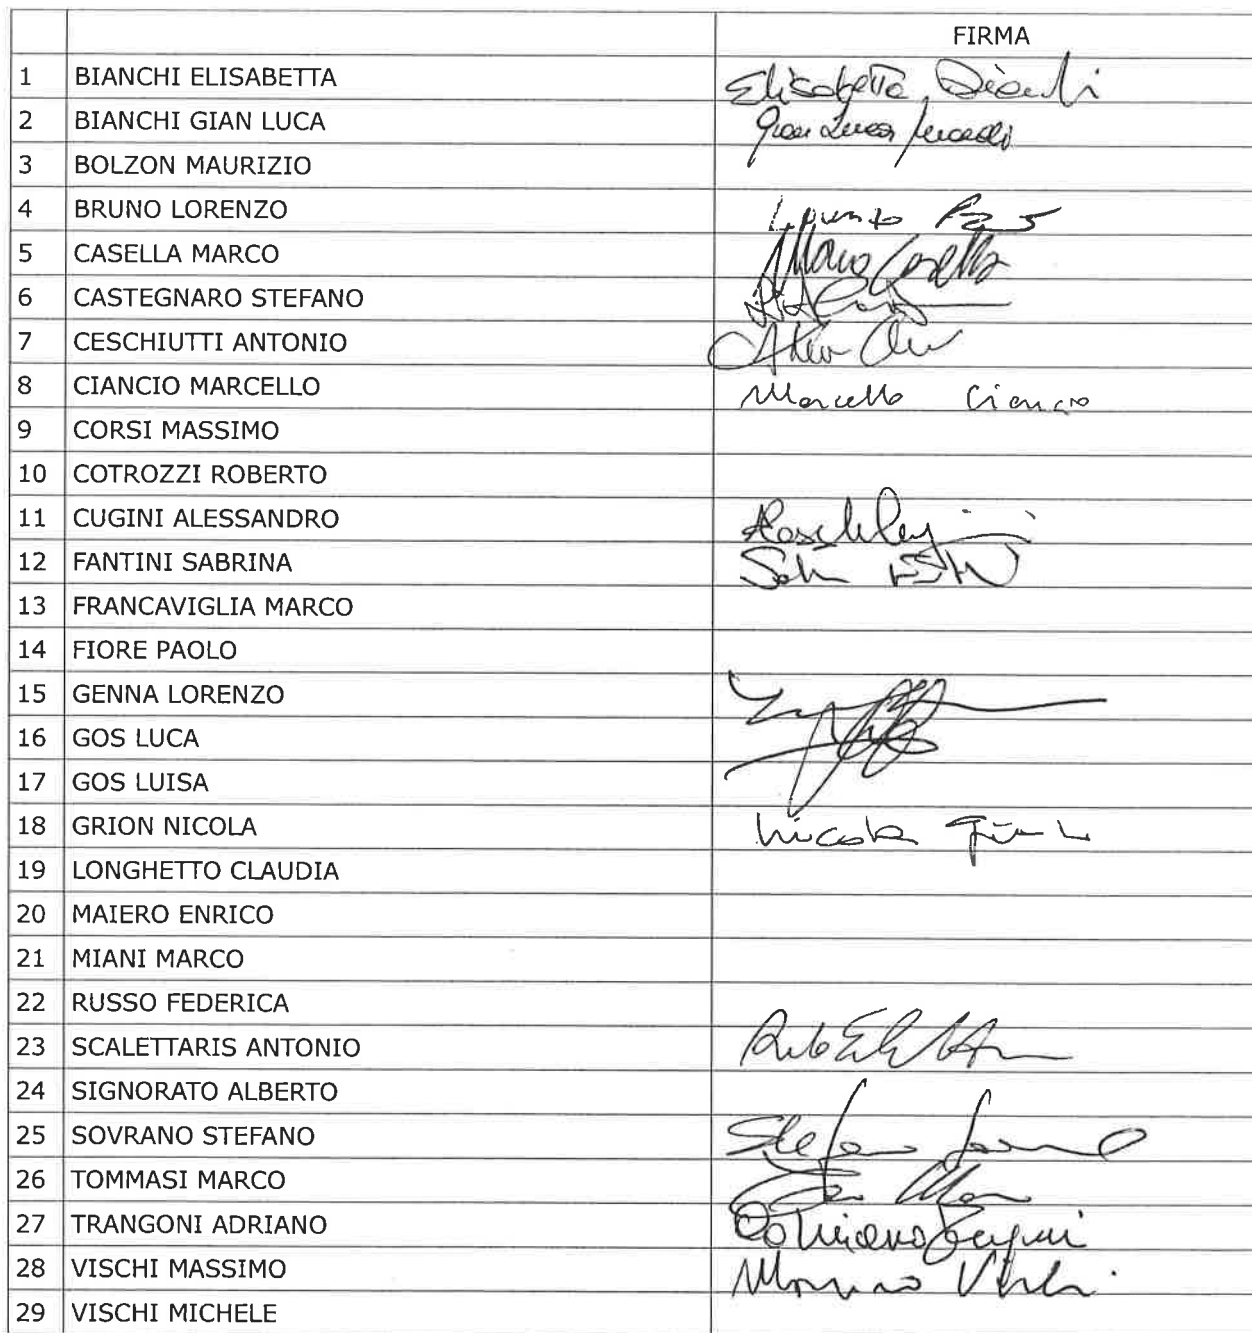 FIRMA
1 BIANCHI ELISABETTA Elisabetta Bianchi
2 BIANCHI GIAN LUCA Gian Luca
3 BOLZON MAURIZIO
4 BRUNO LORENZO Lorenzo
5 CASELLA MARCO Marco Casella
6 CASTEGNARO STEFANO
7 CESCHIUTTI ANTONIO
8 CIANCIO MARCELLO Marcello Ciancio
9 CORSI MASSIMO
10 COTROZZI ROBERTO
11 CUGINI ALESSANDRO
12 FANTINI SABRINA
13 FRANCAVIGLIA MARCO
14 FIORE PAOLO
15 GENNA LORENZO
16 GOS LUCA
17 GOS LUISA
18 GRION NICOLA Nicola
19 LONGHETTO CLAUDIA
20 MAIERO ENRICO
21 MIANI MARCO
22 RUSSO FEDERICA
23 SCALETTARIS ANTONIO
24 SIGNORATO ALBERTO
25 SOVRANO STEFANO Stefano
26 TOMMASI MARCO
27 TRANGONI ADRIANO
28 VISCHI MASSIMO
29 VISCHI MICHELE